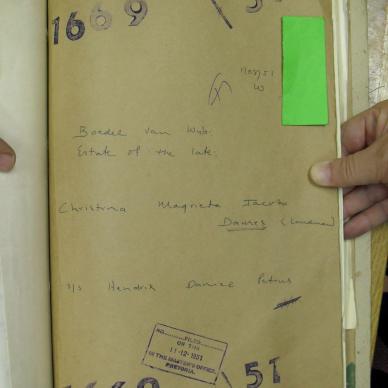 1669 \ 51
1108/51
W
Boedel van Wyle:
Estate of the late:
Christina Magrieta Jacoba
Dawes
n/s Hendrik Daniel Petrus
NO. FILED
ON THE
11-12-1951
IN THE MASTER'S OFFICE,
PRETORIA.
1669 \ 51